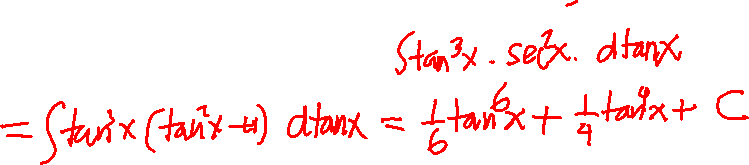 ∫tan³x · sec²x · dtanx
= ∫tan³x(tan²x+1) dtanx = 1/6 tan⁶x + 1/4 tan⁴x + C